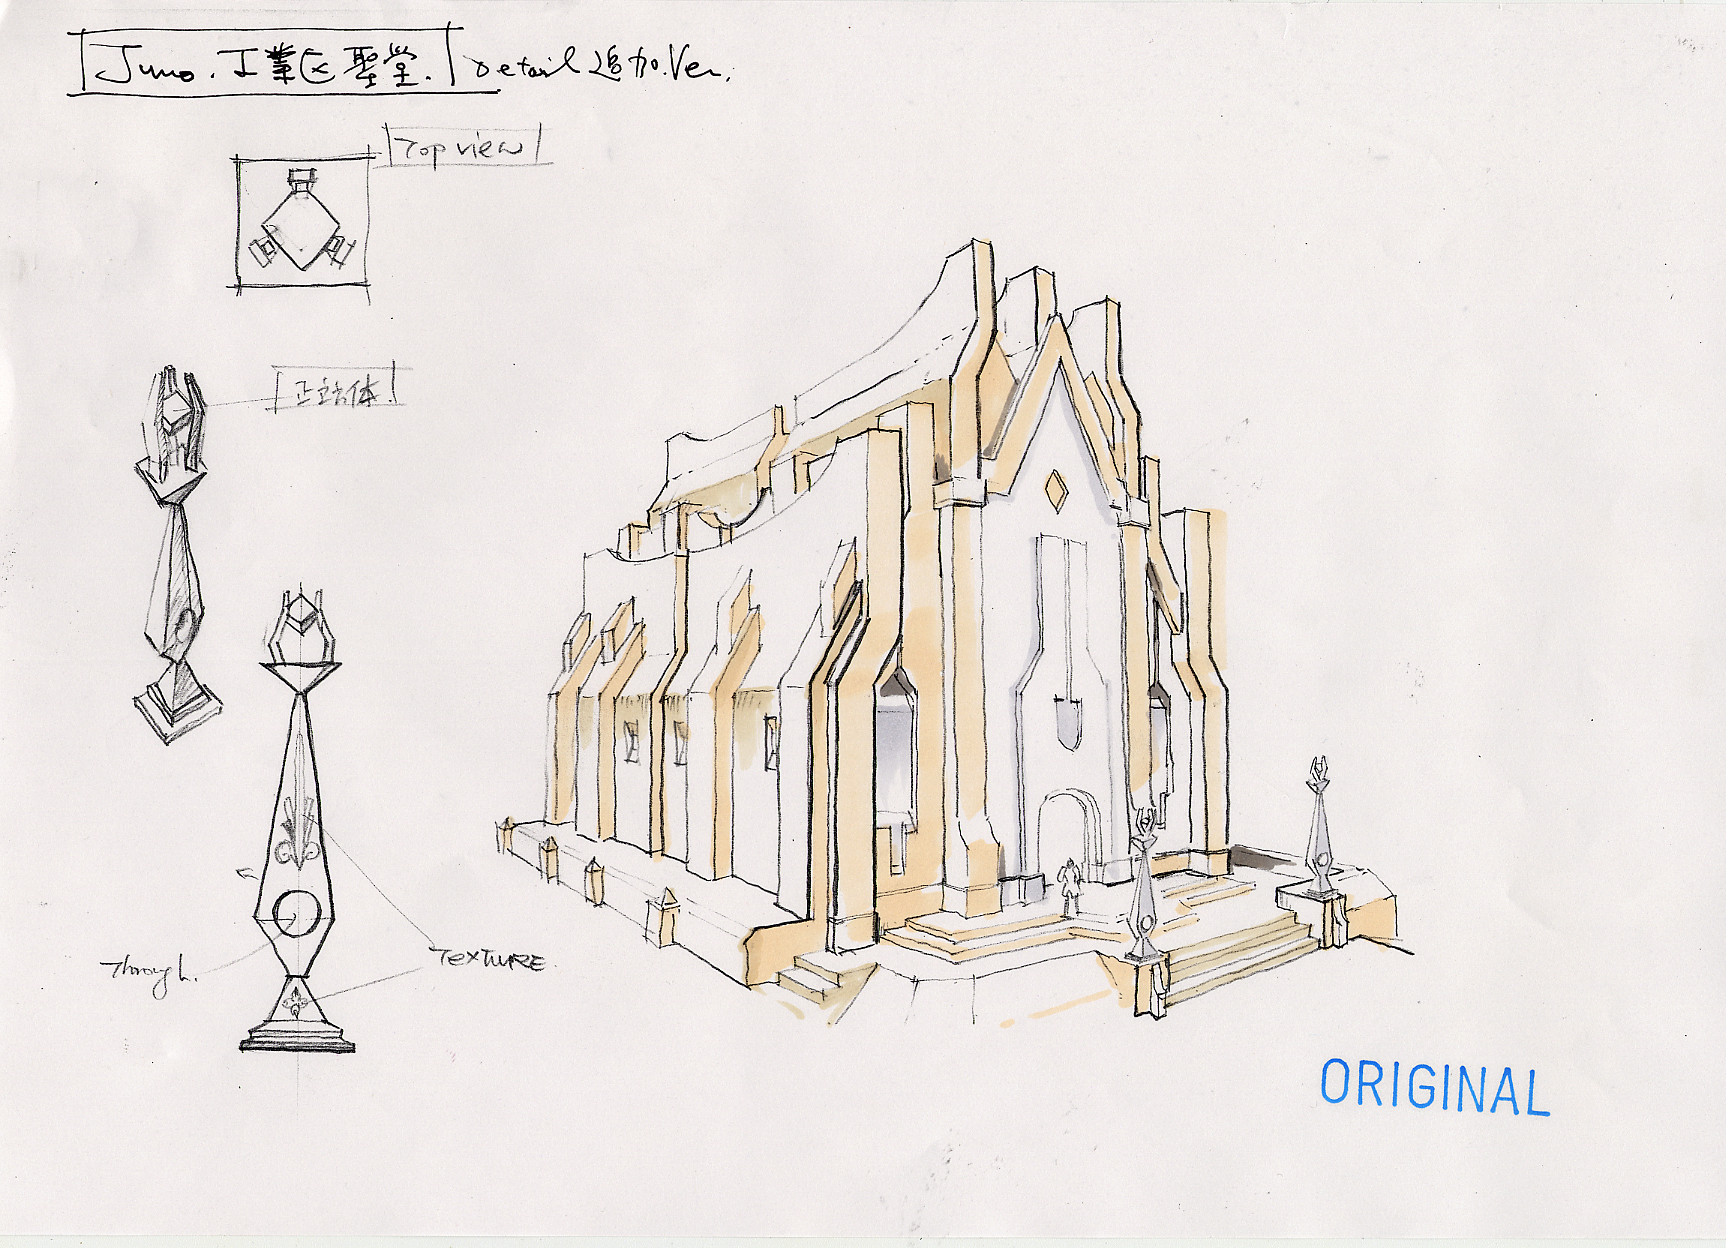 Juno. 工業区 聖堂. Detail 追加.Ver.
Top view
Through.
TEXTURE.
ORIGINAL